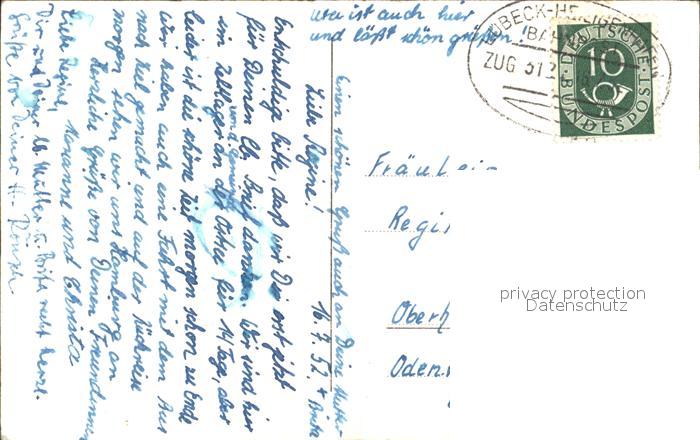 Liebe Regine!
16.7.52
Entschuldige bitte, daß wir Dir erst jetzt
für Deinen lb. Brief danken. Wir sind hier
im Zeltlager an der Ostsee für 14 Tage, aber
leider ist die schöne Zeit morgen schon zu Ende
Wir haben auch eine Fahrt mit dem
nach Kiel gemacht und auf der Rückreise
morgen sehen wir uns Hamburg an
Herzliche Grüße von Deinen Freundinnen
und Christa
Liebe Regine,
Dir und Deiner lb. Mutter u. recht herzl.
Grüße von Deiner H.
Einen schönen Gruß auch an Deine Mutter
ist auch hier
und läßt schön grüßen!
LÜBECK-HEILIGENHAFEN
BAHNPOST
ZUG 512
DEUTSCHE BUNDESPOST
10
Fräulein
Regi
Oberh
Oden
privacy protection
Datenschutz